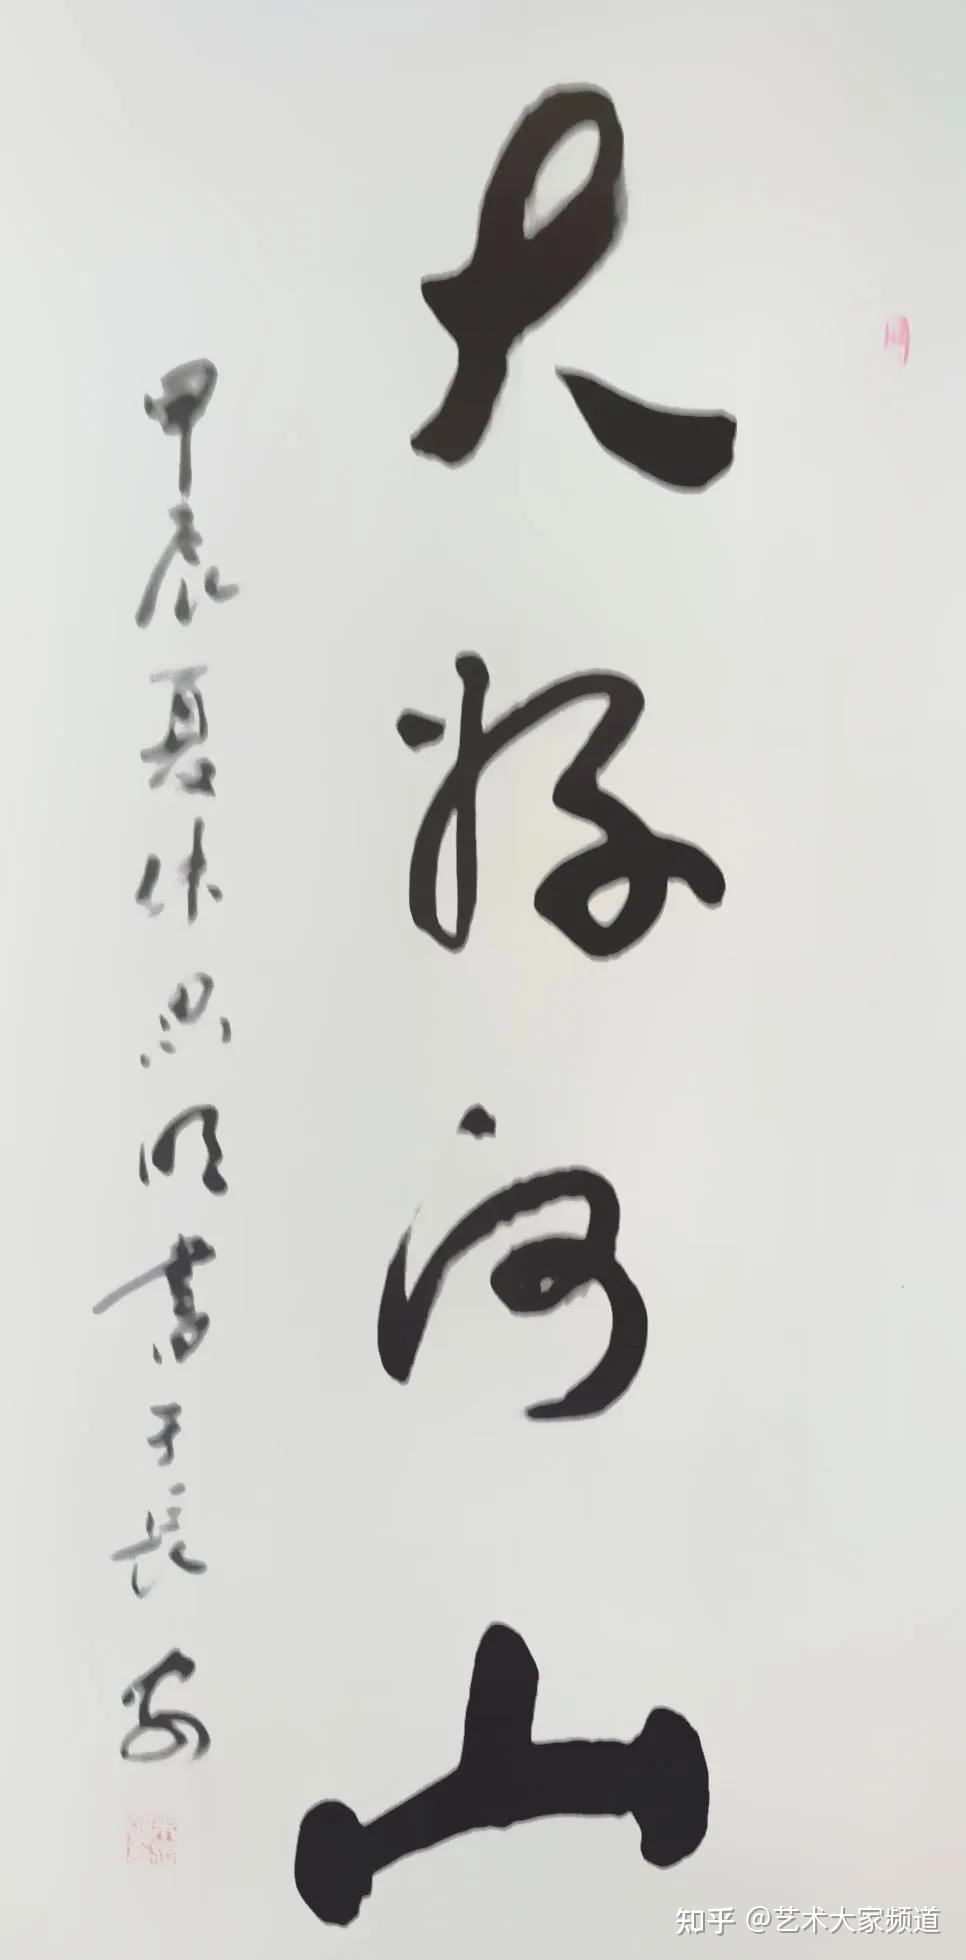 大好河山
甲辰夏休思明書于長安
知乎 @艺术大家频道